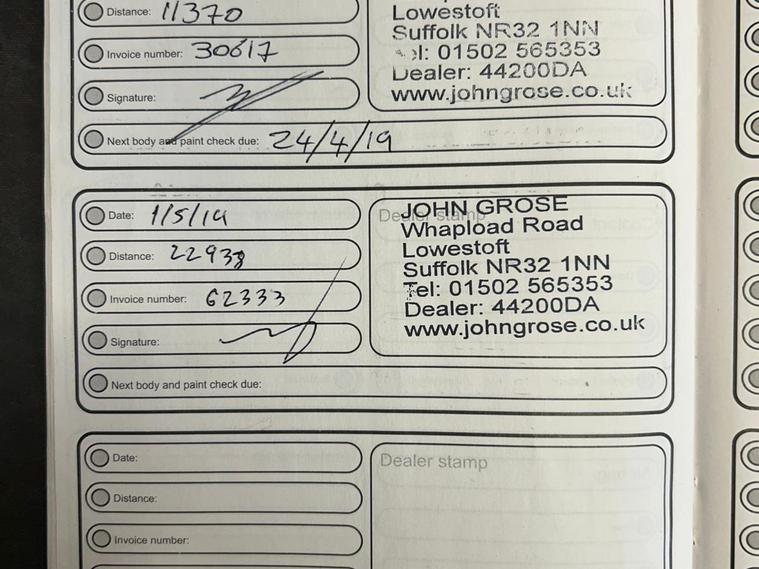 Distance: 11370
Invoice number: 30617
Signature:
Lowestoft
Suffolk NR32 1NN
el: 01502 565353
Dealer: 44200DA
www.johngrose.co.uk
Next body and paint check due: 24/4/19
Date: 1/5/19
Distance: 22938
Invoice number: 62333
Signature:
Dealer stamp
JOHN GROSE
Whapload Road
Lowestoft
Suffolk NR32 1NN
Tel: 01502 565353
Dealer: 44200DA
www.johngrose.co.uk
Next body and paint check due:
Date:
Distance:
Invoice number:
Dealer stamp